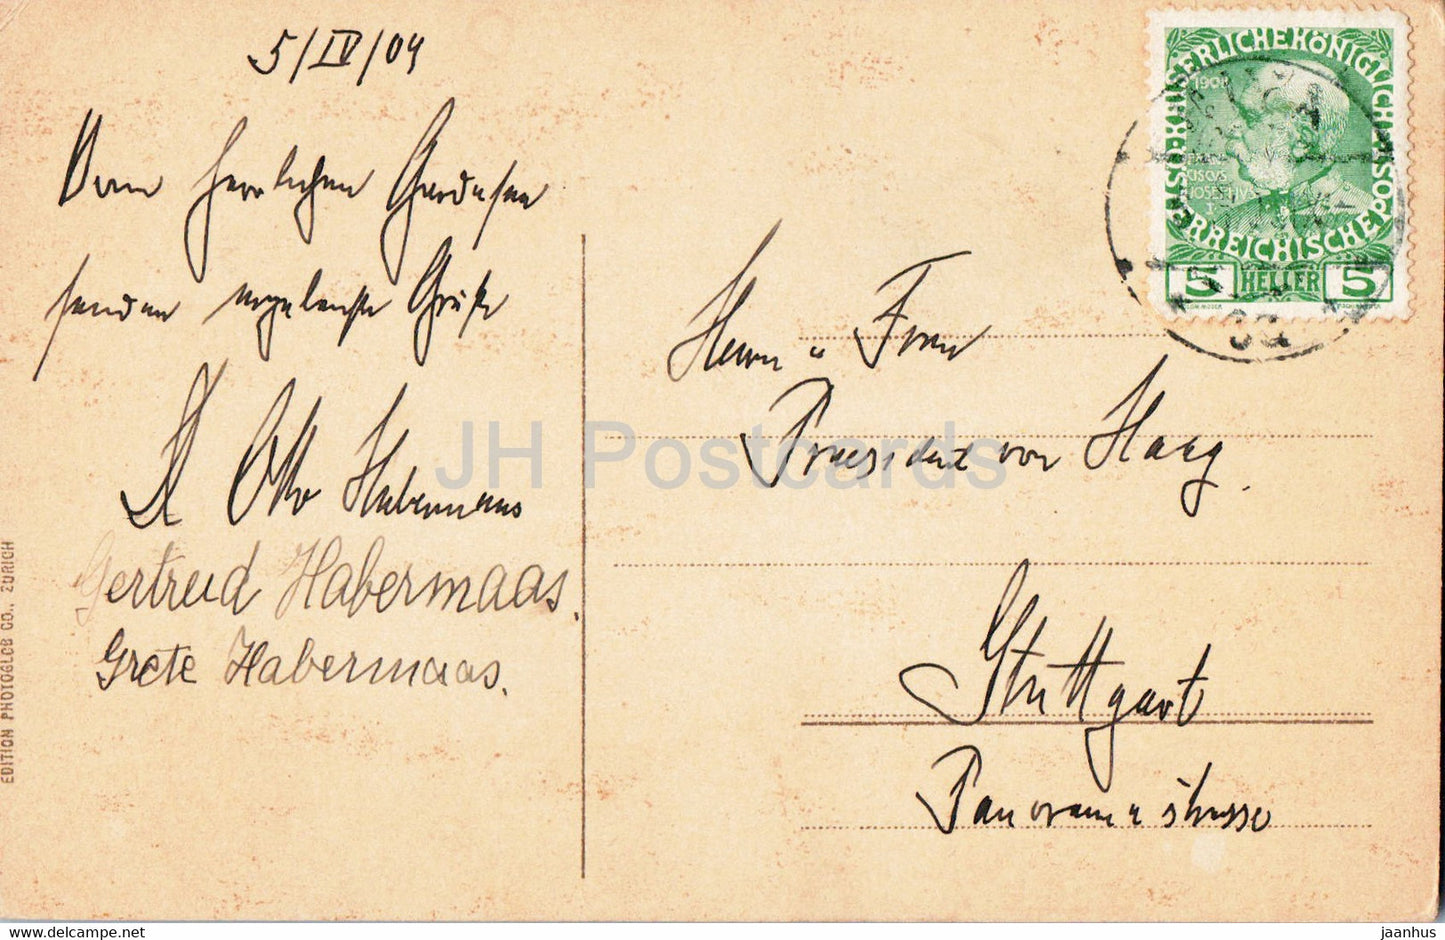 5/IV/09
Vom herrlichen Gardasee
senden ergebenste Grüße
Otto Habermaas
Gertrud Habermaas.
Grete Habermaas.
EDITION PHOTOGLOB CO., ZÜRICH
KAISERLICHE KÖNIGLICHE
ÖSTERREICHISCHE POST
1908
5 HELLER 5
Herrn u Frau
Praesident von Haag.
Stuttgart
Panoramastrasse
JH Postcards
jaanhus